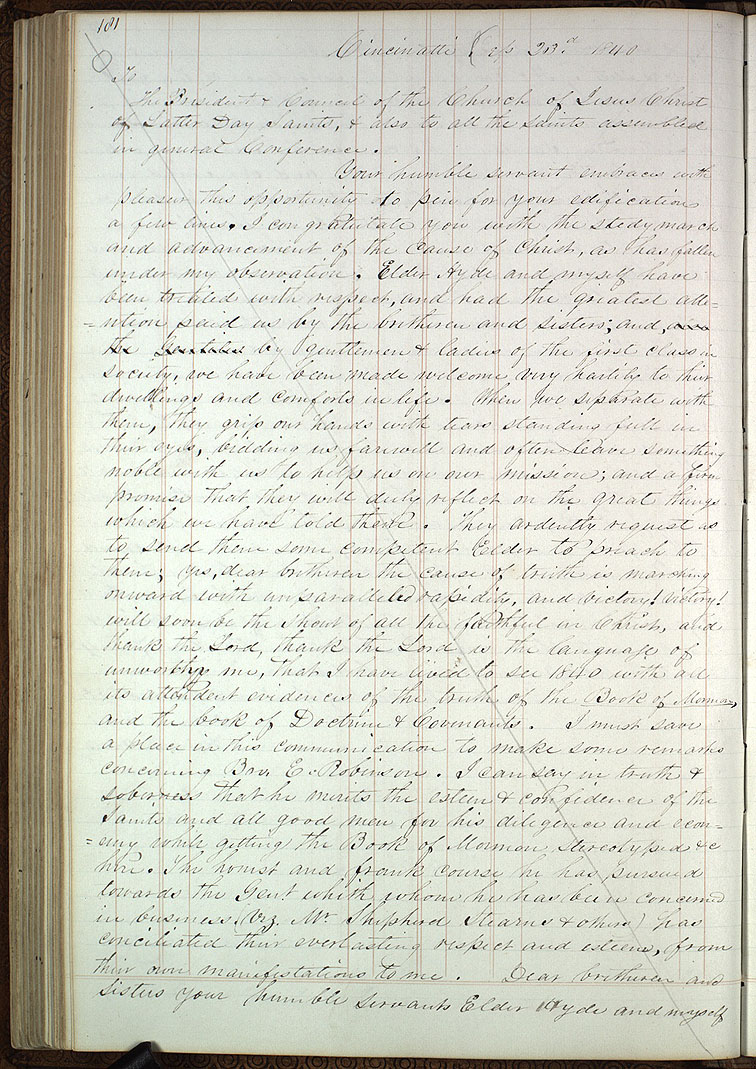 181
Cincinatti Sep 23.d 1840
To
The President & Council of the Church of Jesus Christ
of Latter Day Saints, & also to all the saints assembled
in general Conference.
Your humble servant embraces with
pleasur this opportunity to pen for your edification
a few lines. I congratulate you with the stedy march
and advancement of the cause of Christ, as has fallen
under my observation. Elder Hyde and myself have
been treated with respect, and had the greatest atte=
=ntion paid us by the bretheren and sisters; and also
the Gentiles by gentlemen & ladies of the first class in
society, we have been made welcome very hartily to their
dwellings and comforts in life. When we seperate with
them, they grip our hands with tears standing full in
their eyes, bidding us farewell and often leave something
noble with us to help us on our mission; and a firm
promise that they will duly reflect on the great things
which we have told them. They ardently request us
to send them some competent Elder to preach to
them; yes, dear bretheren the cause of truth is marching
onward with unparalleled rapidity, and victory! victory!
will soon be the shout of all the faithful in Christ, and
thank the Lord, thank the Lord is the language of
unworthy me, that I have lived to see 1840 with all
its attendent evidences of the truth of the Book of Mormon,
and the book of Doctrine & Covenants. I must save
a place in this communication to make some remarks
concerning Bro. E. Robinson. I can say in truth &
soberness that he merits the esteem & confidence of the
Saints and all good men for his diligence and econ=
=emy while getting the Book of Mormon stereotyped &c
here. The honist and frank course he has pursued
towards the Gent. with whom he has been concerned
in business (viz. Mr. Shepherd Stearns & others) has
conciliated their everlasting respect and esteem, from
their own manifestations to me. Dear bretheren and
sisters your humble servants Elder Hyde and myself